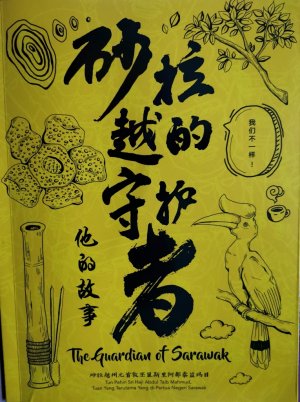 砂拉
越的
守护
者
我们不一样！
他的故事
The Guardian of Sarawak
砂拉越州元首敦丕显斯里阿都泰益玛目
Tun Pehin Sri Haji Abdul Taib Mahmud,
Tuan Yang Terutama Yang di-Pertua Negeri Sarawak